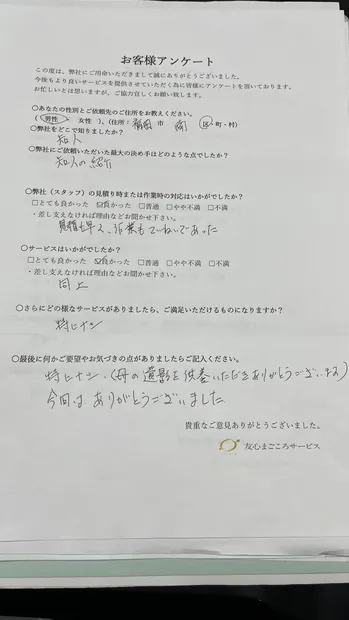 お客様アンケート
この度は、弊社にご用命いただきまして誠にありがとうございました。
今後もより良いサービスを提供させていただく為に皆様にアンケートを賜いております。
お忙しいとは思いますが、ご協力宜しくお願い致します。
○あなたの性別とご依頼先のご住所をお教えください。
(男性 女性 )、(住所: 福岡 市 南 区・町・村)
○弊社をどこで知りましたか?
知人
○弊社にご依頼いただいた最大の決め手はどのような点でしたか?
知人の紹介
○弊社(スタッフ)の見積り時または作業時の対応はいかがでしたか?
□とても良かった ☑良かった □普通 □やや不満 □不満
・差し支えなければ理由などお聞かせ下さい。
見積も早く、作業もていねいであった
○サービスはいかがでしたか?
□とても良かった ☑良かった □普通 □やや不満 □不満
・差し支えなければ理由などお聞かせ下さい。
同上
○さらにどの様なサービスがありましたら、ご満足いただけるものになりますか?
特にナシ
○最後に何かご要望やお気づきの点がありましたらご記入ください。
特にナシ、(母の遺影を供養いただきありがとうございます)
今回は、ありがとうございました
貴重なご意見ありがとうございました。
友心まごころサービス